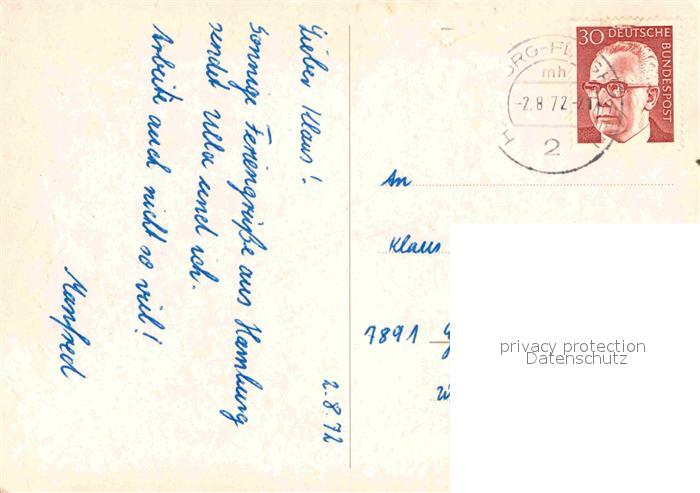 2.8.72
Lieber Klaus!
Sonnige Feriengrüße aus Hamburg
sendet Ulla und ich.
Arbeite auch nicht so viel!
Manfred
30 DEUTSCHE
BUNDESPOST
mh
-2.8.72-
2
An
Klaus
7891
privacy protection
Datenschutz